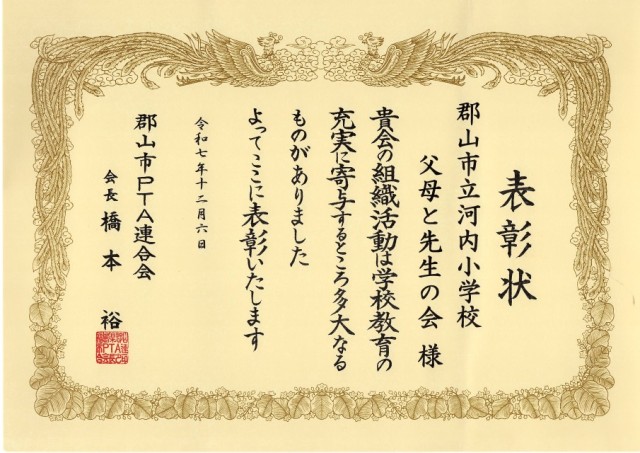 表彰状
郡山市立河内小学校
父母と先生の会 様
貴会の組織活動は学校教育の
充実に寄与するところ多大なる
ものがありました
よってここに表彰いたします
令和七年十二月六日
郡山市PTA連合会
会長 橋本 裕